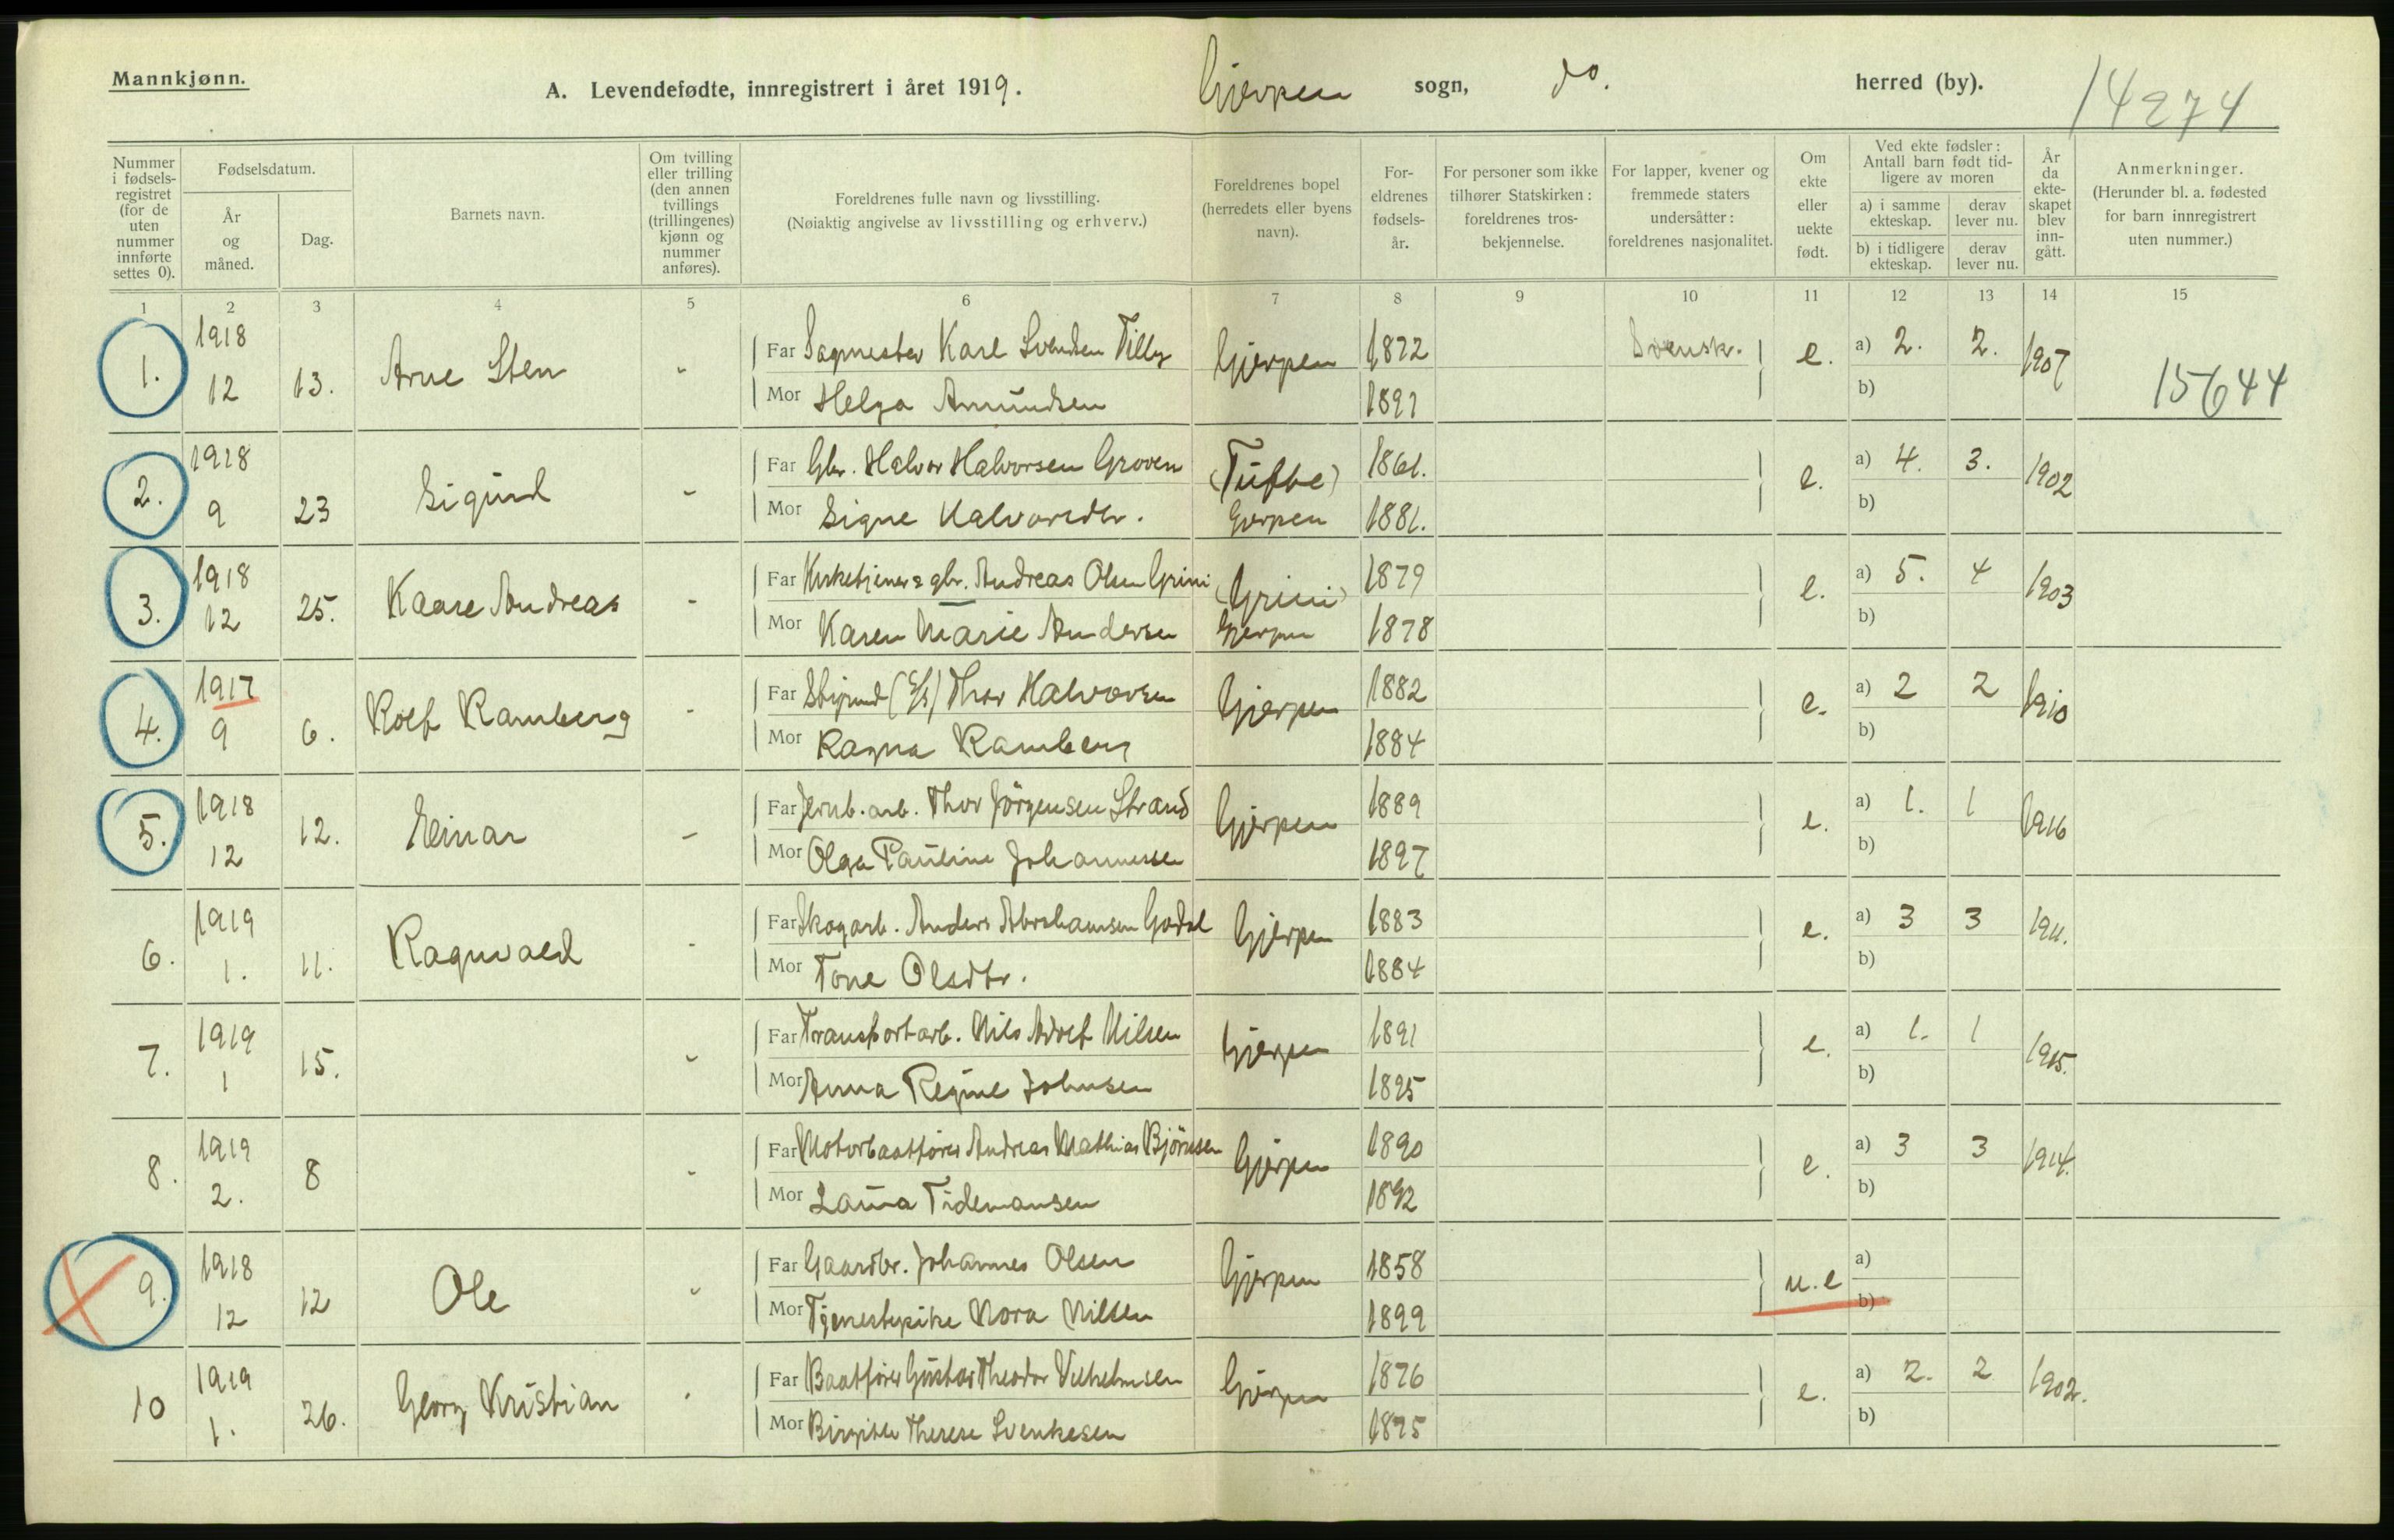 Mannkjønn.
A. Levendefødte, innregistrert i året 1919. Gjerpen sogn, do. herred (by).
14274
Nummer i fødsels-registret (for de uten nummer innførte settes 0).
Fødselsdatum.
År og måned.
Dag.
Barnets navn.
Om tvilling eller trilling (den annen tvillings (trillingenes) kjønn og nummer anføres).
Foreldrenes fulle navn og livsstilling.
(Nøiaktig angivelse av livsstilling og erhverv.)
Foreldrenes bopel (herredets eller byens navn).
For-eldrenes fødsels-år.
For personer som ikke tilhører Statskirken: foreldrenes tros-bekjennelse.
For lapper, kvener og fremmede staters undersåtter: foreldrenes nasjonalitet.
Om ekte eller uekte født.
Ved ekte fødsler: Antall barn født tid-ligere av moren
a) i samme ekteskap.
derav lever nu.
b) i tidligere ekteskap.
derav lever nu.
År da ekte-skapet blev inn-gått.
Anmerkninger.
(Herunder bl. a. fødested for barn innregistrert uten nummer.)
1 2 3 4 5 6 7 8 9 10 11 12 13 14 15
1. 1918 12 13. Arne Sten - Far Sagmester Karl Svendsen Tilley Gjerpen 1872 Svensk. e. a) 2. 2. 1907
Mor Helga Amundsen 1891 b) 15644
2. 1918 9 23 Sigurd - Far Gbr. Halvor Halvorsen Groven (Tufte) 1861. e. a) 4. 3. 1902
Mor Signe Halvorsdtr. Gjerpen 1881. b)
3. 1918 12 25. Kaare Andreas - Far Kirketjener & gbr. Andreas Olsen Grini (Grini) 1879 e. a) 5. 4 1903
Mor Karen Marie Andersen Gjerpen 1878 b)
4. 1917 9 6. Rolf Ramberg - Far Thor Halvorsen Gjerpen 1882 e. a) 2 2 1910
Mor Ragna Ramberg 1884 b)
5. 1918 12 12. Einar - Far Jernb.arb. Thor Jörgensen Strand Gjerpen 1889 e. a) 1. 1 1916
Mor Olga Pauline Johannessen 1897 b)
6. 1919 1. 11. Ragnvald - Far Skogarb. Anders Abrahamsen Godal Gjerpen 1883 e. a) 3 3 1911.
Mor Tone Olsdtr. 1884 b)
7. 1919 1 15. - Far Transportarb. Nils Adolf Nilsen Gjerpen 1891 e. a) 1. 1 1915.
Mor Anna Regine Johnsen 1895 b)
8. 1919 2. 8 - Far Motorbaatfører Andreas Mathias Björnsen Gjerpen 1890 e. a) 3 3 1914.
Mor Laura Tidemansen 1892 b)
9. 1918 12 12 Ole - Far Gaardbr. Johannes Olsen Gjerpen 1858 u.e a)
Mor Tjenestepike Nora Nilsen 1899 b)
10 1919 1. 26. Georg Kristian - Far Baatfører Gustav Theodor Vilhelmsen Gjerpen 1876 e. a) 2. 2 1902.
Mor Birgitte Therese Svenkesen 1875 b)